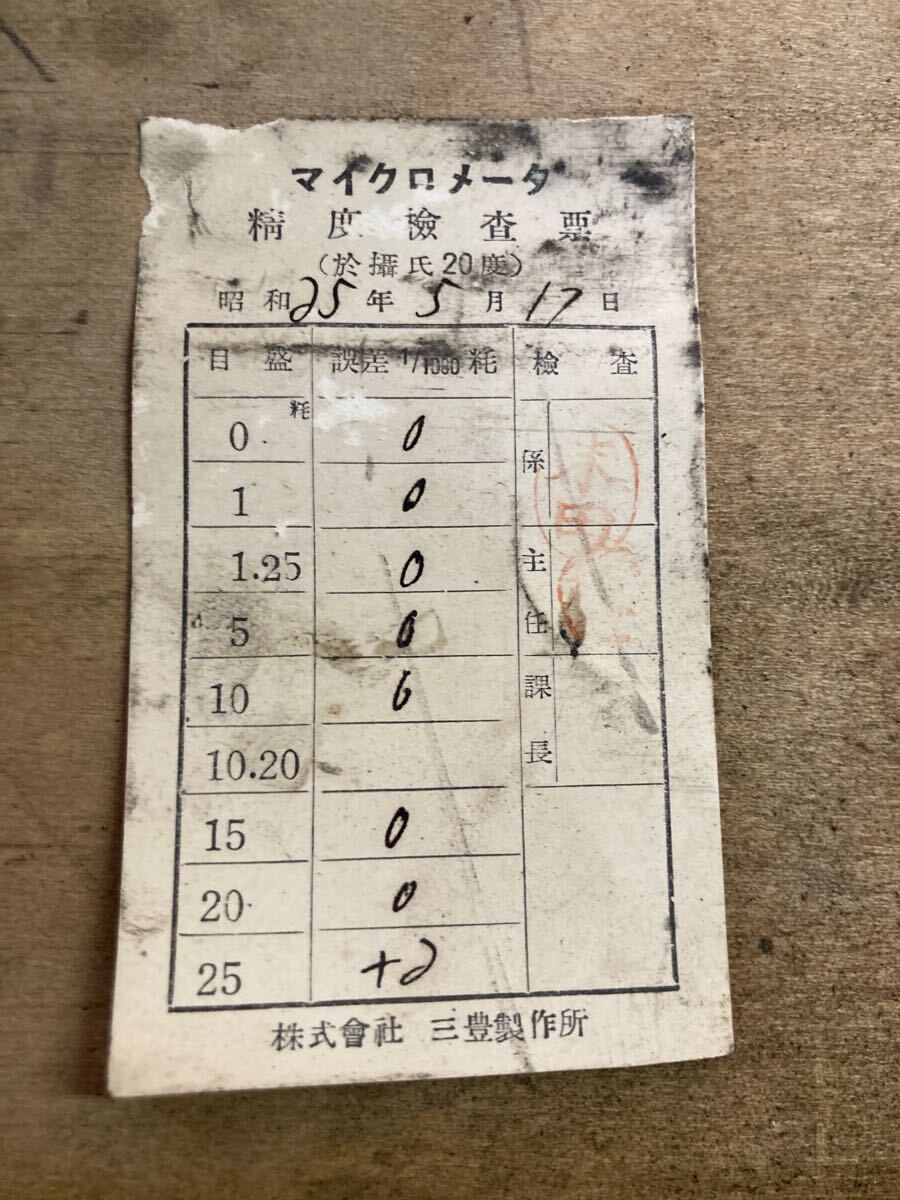 マイクロメータ
精度檢査票
(於攝氏20度)
昭和25年5月17日
目盛 誤差 1/1000粍 檢査
0 粍 0
係
1 0
1.25 0
主任
5 0
10 0
課長
10.20
15 0
20 0
25 +2
株式會社 三豊製作所